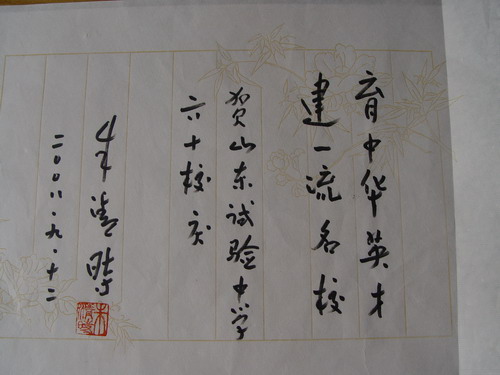 育中华英才
建一流名校
贺山东试验中学
六十校庆
朱清時
二〇〇八.九.十二